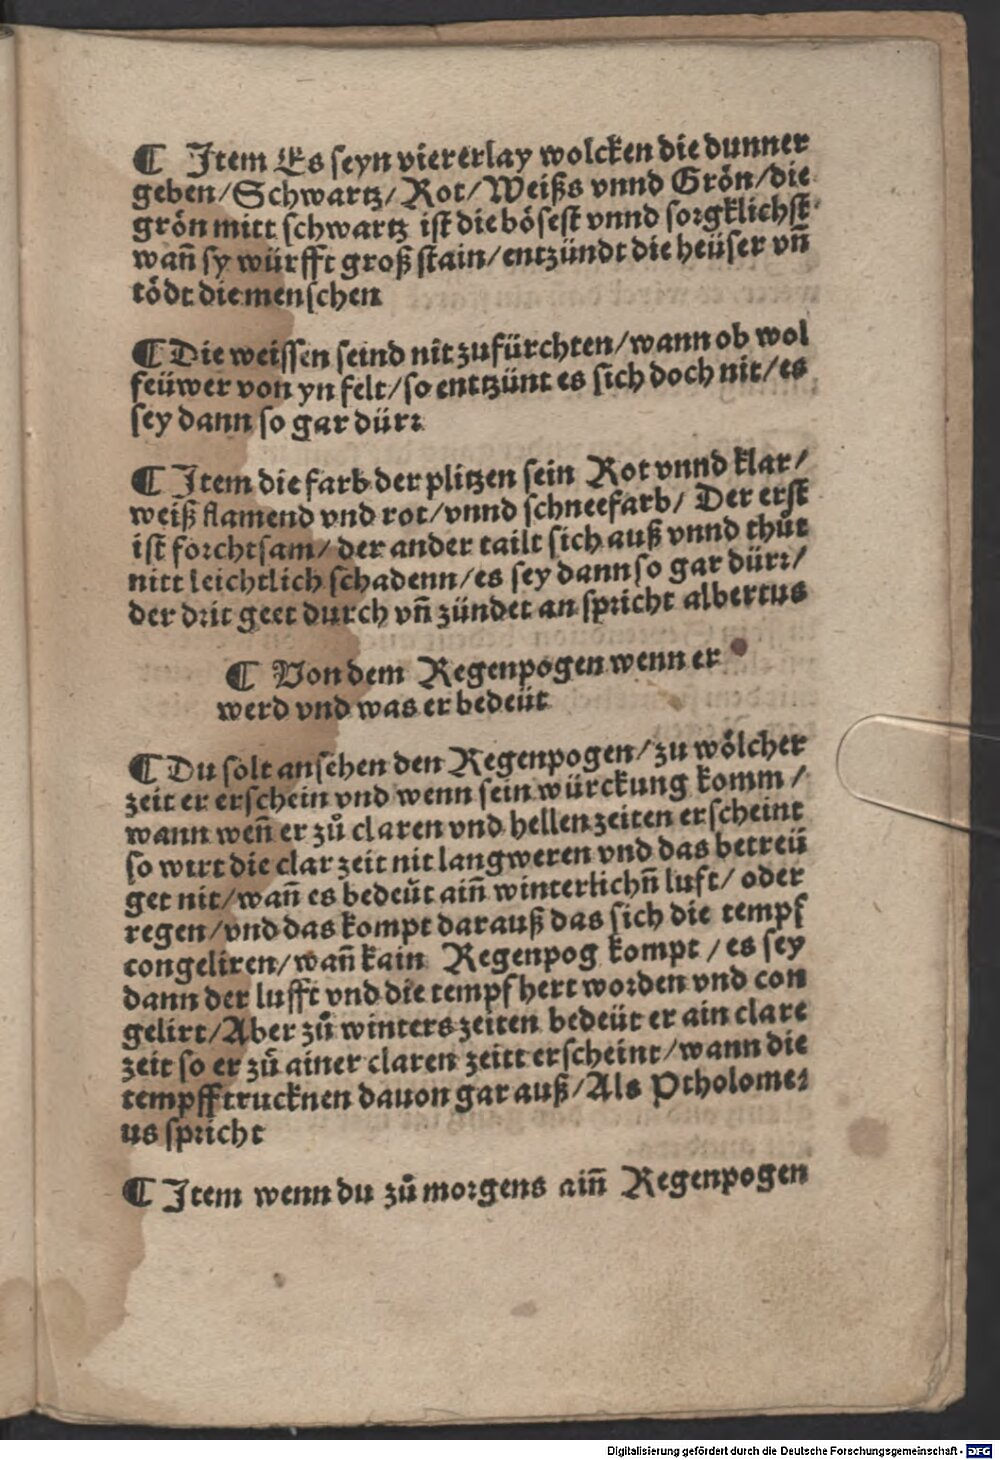 ¶ Item Es seyn viererlay wolcken die dunner
geben/Schwartz/Rot/Weißs vnnd Grön/die
grön mitt schwartz ist die bösest vnnd sorgklichst
wañ sy würfft groß stain/entzündt die heüser vñ
tödt die menschen
¶ Die weissen seind nit zufürchten/wann ob wol
feüwer von yn felt/so entzünt es sich doch nit/es
sey dann so gar dürr
¶ Item die farb der plitzen sein Rot vnnd klar/
weiß flamend vnd rot/vnnd schneefarb/ Der erst
ist forchtsam/ der ander tailt sich auß vnnd thůt
nitt leichtlich schadenn/es sey dann so gar dürr/
der drit geet durch vñ zündet an spricht albertus
¶ Von dem Regenpogen wenn er
werd vnd was er bedeüt
¶ Du solt ansehen den Regenpogen/zu wölcher
zeit er erschein vnd wenn sein würckung komm/
wann weñ er zů claren vnd hellen zeiten erscheint
so wirt die clar zeit nit langweren vnd das betreü
get nit/wañ es bedeüt aiñ winterlichñ luft/ oder
regen/vnd das kompt darauß das sich die tempf
congeliren/wañ kain Regenpog kompt/es sey
dann der lufft vnd die tempf hert worden vnd con
gelirt/Aber zů winters zeiten bedeüt er ain clare
zeit so er zů ainer claren zeitt erscheint/wann die
tempff trucknen dauon gar auß/Als Ptholome⸗
us spricht
¶ Item wenn du zů morgens aiñ Regenpogen
Digitalisierung gefördert durch die Deutsche Forschungsgemeinschaft - DFG